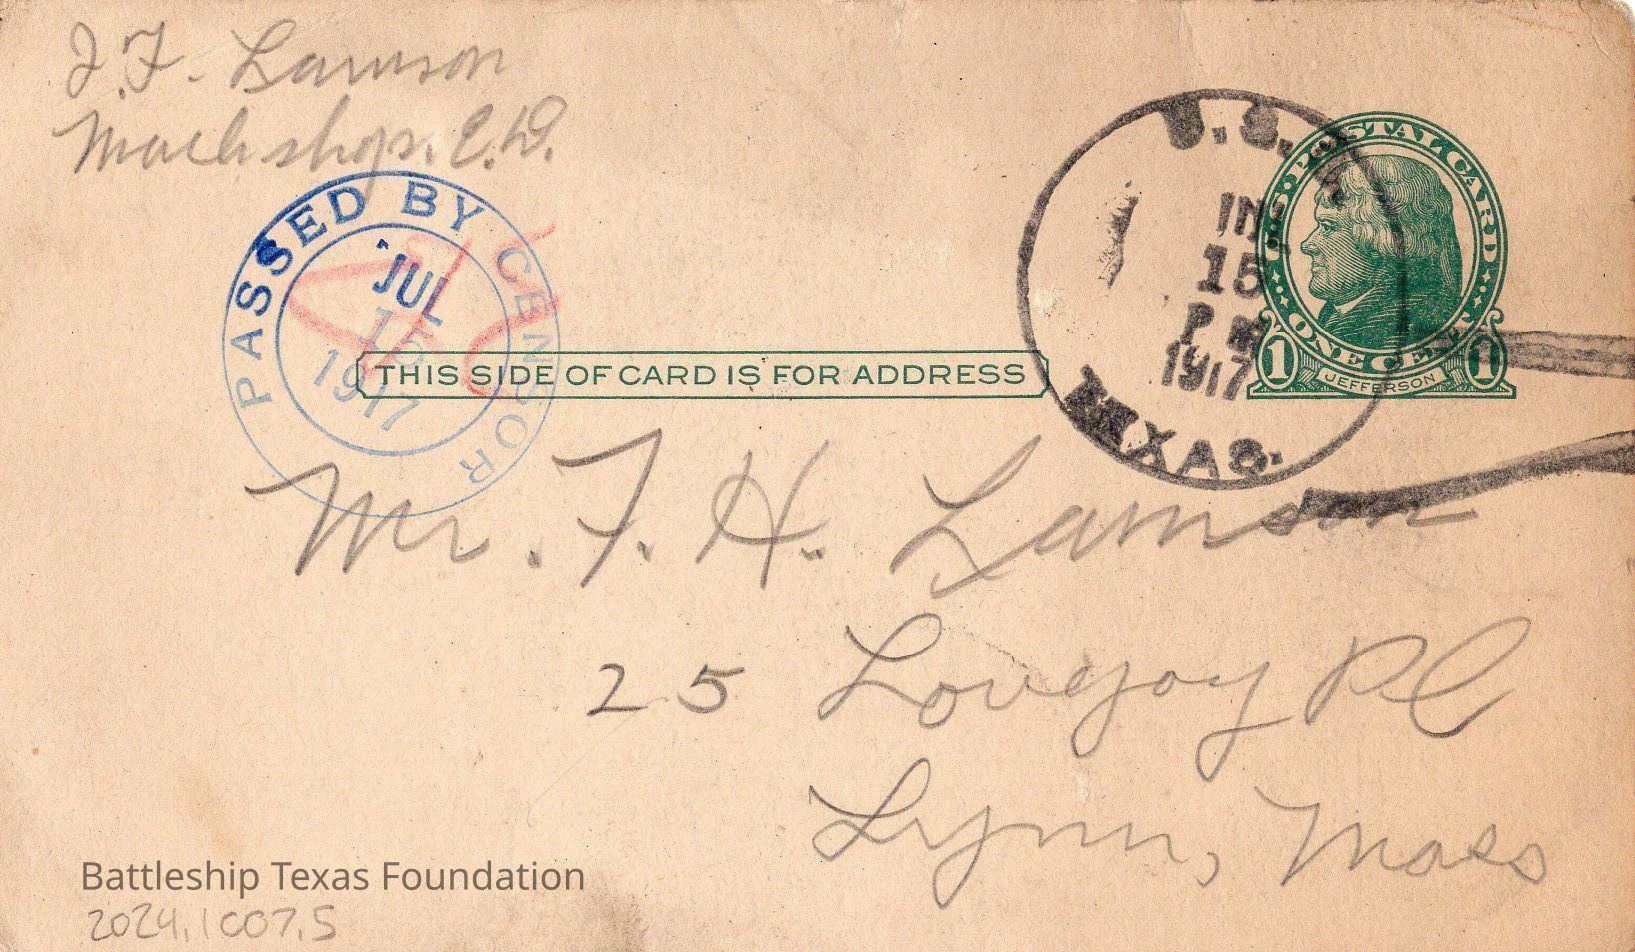 J.F. Lamson
Mach shops. E.D.
PASSED BY CENSOR
JUL
15
1917
U.S.
15
P M
1917
TEXAS.
U.S. POSTAL CARD
ONE CENT
1 JEFFERSON 1
THIS SIDE OF CARD IS FOR ADDRESS
Mr. F. H. Lamson
25 Lovejoy Pl
Lynn, Mass
Battleship Texas Foundation
2024.1007.5